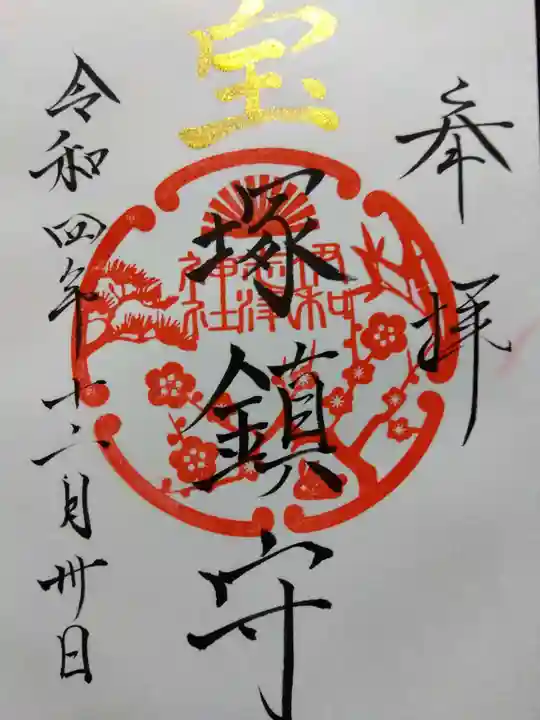 奉拝
宝塚鎮守
伊和
志津
神社
令和四年十二月卅日